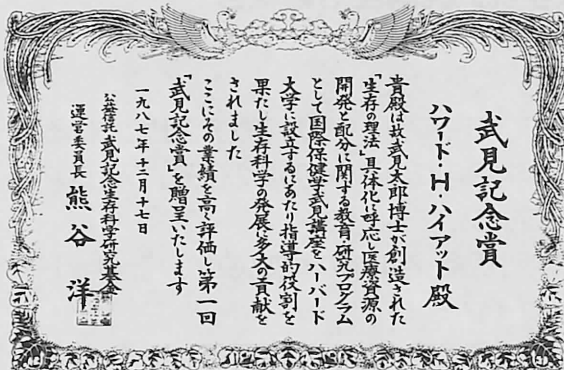 武見記念賞
ハワード・H・ハイアット殿
貴殿は故武見太郎博士が創造された
「生存の理法」具体化に呼応し医療資源の
開発と配分に関する教育・研究プログラム
として国際保健学武見講座をハーバード
大学に設立するにあたり指導的役割を
果たし生存科学の発展に多大の貢献を
されました
ここにその業績を高く評価し第一回
「武見記念賞」を贈呈いたします
一九八七年十二月十七日
公益信託 武見記念生存科学研究基金
運営委員長 熊谷 洋